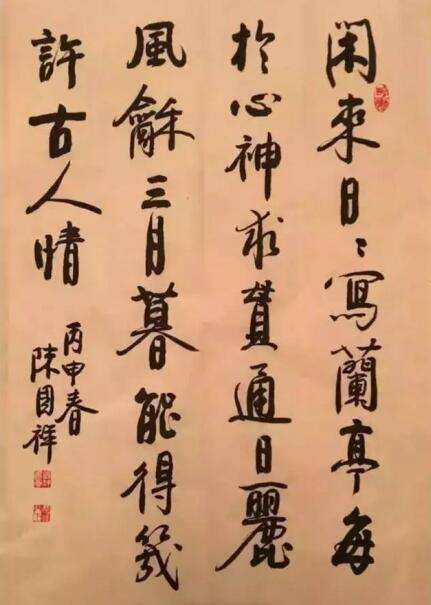 閑來日〻寫蘭亭每
於心神求貫通日麗
風龢三月暮能得幾
許古人情
丙申春
陳國祥